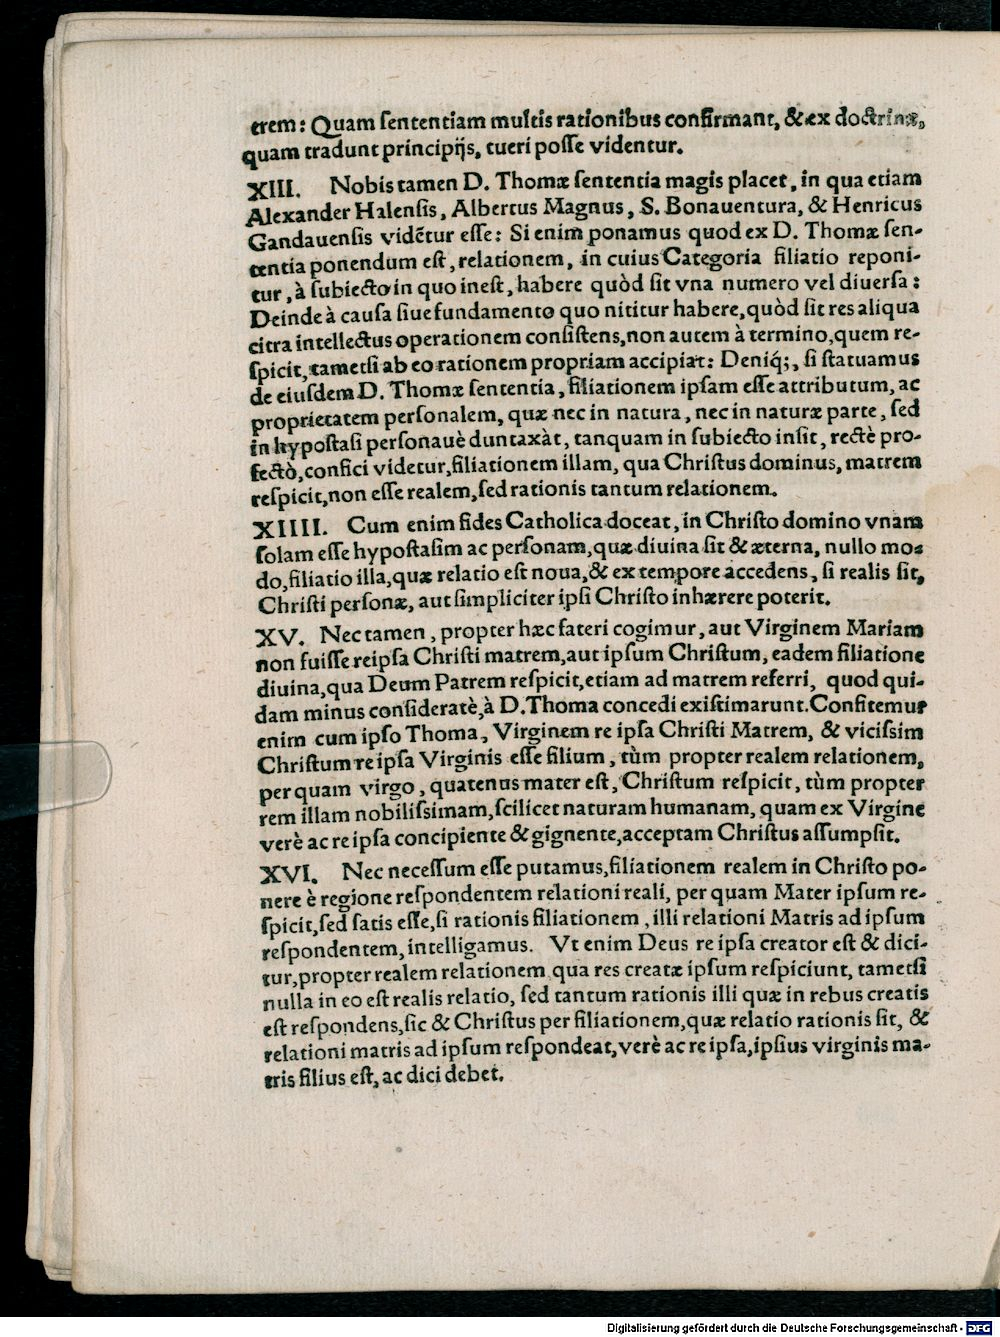 trem: Quam ſententiam multis rationibus confirmant, & ex doctrinæ,
quam tradunt principijs, tueri poſſe videntur.
XIII. Nobis tamen D. Thomæ ſententia magis placet, in qua etiam
Alexander Halenſis, Albertus Magnus, S. Bonauentura, & Henricus
Gandauenſis vidẽtur eſſe: Si enim ponamus quod ex D. Thomæ ſen-
tentia ponendum eſt, relationem, in cuius Categoria filiatio reponi-
tur, à ſubiecto in quo ineſt, habere quòd ſit vna numero vel diuerſa:
Deinde à cauſa ſiue fundamento quo nititur habere, quòd ſit res aliqua
citra intellectus operationem conſiſtens, non autem à termino, quem re-
ſpicit, tametſi ab eo rationem propriam accipiat: Deniq́;, ſi ſtatuamus
de eiuſdem D. Thomæ ſententia, filiationem ipſam eſſe attributum, ac
proprietatem perſonalem, quæ nec in natura, nec in naturæ parte, ſed
in hypoſtaſi perſonauè duntaxàt, tanquam in ſubiecto inſit, rectè pro-
fectò, confici videtur, filiationem illam, qua Chriſtus dominus, matrem
reſpicit, non eſſe realem, ſed rationis tantum relationem.
XIIII. Cum enim fides Catholica doceat, in Chriſto domino vnam
ſolam eſſe hypoſtaſim ac perſonam, quæ diuina ſit & æterna, nullo mo-
do, filiatio illa, quæ relatio eſt noua, & ex tempore accedens, ſi realis ſit,
Chriſti perſonæ, aut ſimpliciter ipſi Chriſto inhærere poterit.
XV. Nec tamen, propter hæc fateri cogimur, aut Virginem Mariam
non fuiſſe reipſa Chriſti matrem, aut ipſum Chriſtum, eadem filiatione
diuina, qua Deum Patrem reſpicit, etiam ad matrem referri, quod qui-
dam minus conſideratè, à D. Thoma concedi exiſtimarunt. Confitemur
enim cum ipſo Thoma, Virginem re ipſa Chriſti Matrem, & viciſsim
Chriſtum re ipſa Virginis eſſe filium, tùm propter realem relationem,
per quam virgo, quatenus mater eſt, Chriſtum reſpicit, tùm propter
rem illam nobiliſsimam, ſcilicet naturam humanam, quam ex Virgine
verè ac re ipſa concipiente & gignente, acceptam Chriſtus aſſumpſit.
XVI. Nec neceſſum eſſe putamus, filiationem realem in Chriſto po-
nere è regione reſpondentem relationi reali, per quam Mater ipſum re-
ſpicit, ſed ſatis eſſe, ſi rationis filiationem, illi relationi Matris ad ipſum
reſpondentem, intelligamus. Vt enim Deus re ipſa creator eſt & dici-
tur, propter realem relationem qua res creatæ ipſum reſpiciunt, tametſi
nulla in eo eſt realis relatio, ſed tantum rationis illi quæ in rebus creatis
eſt reſpondens, ſic & Chriſtus per filiationem, quæ relatio rationis ſit, &
relationi matris ad ipſum reſpondeat, verè ac re ipſa, ipſius virginis ma-
tris filius eſt, ac dici debet.
Digitalisierung gefördert durch die Deutsche Forschungsgemeinschaft - DFG